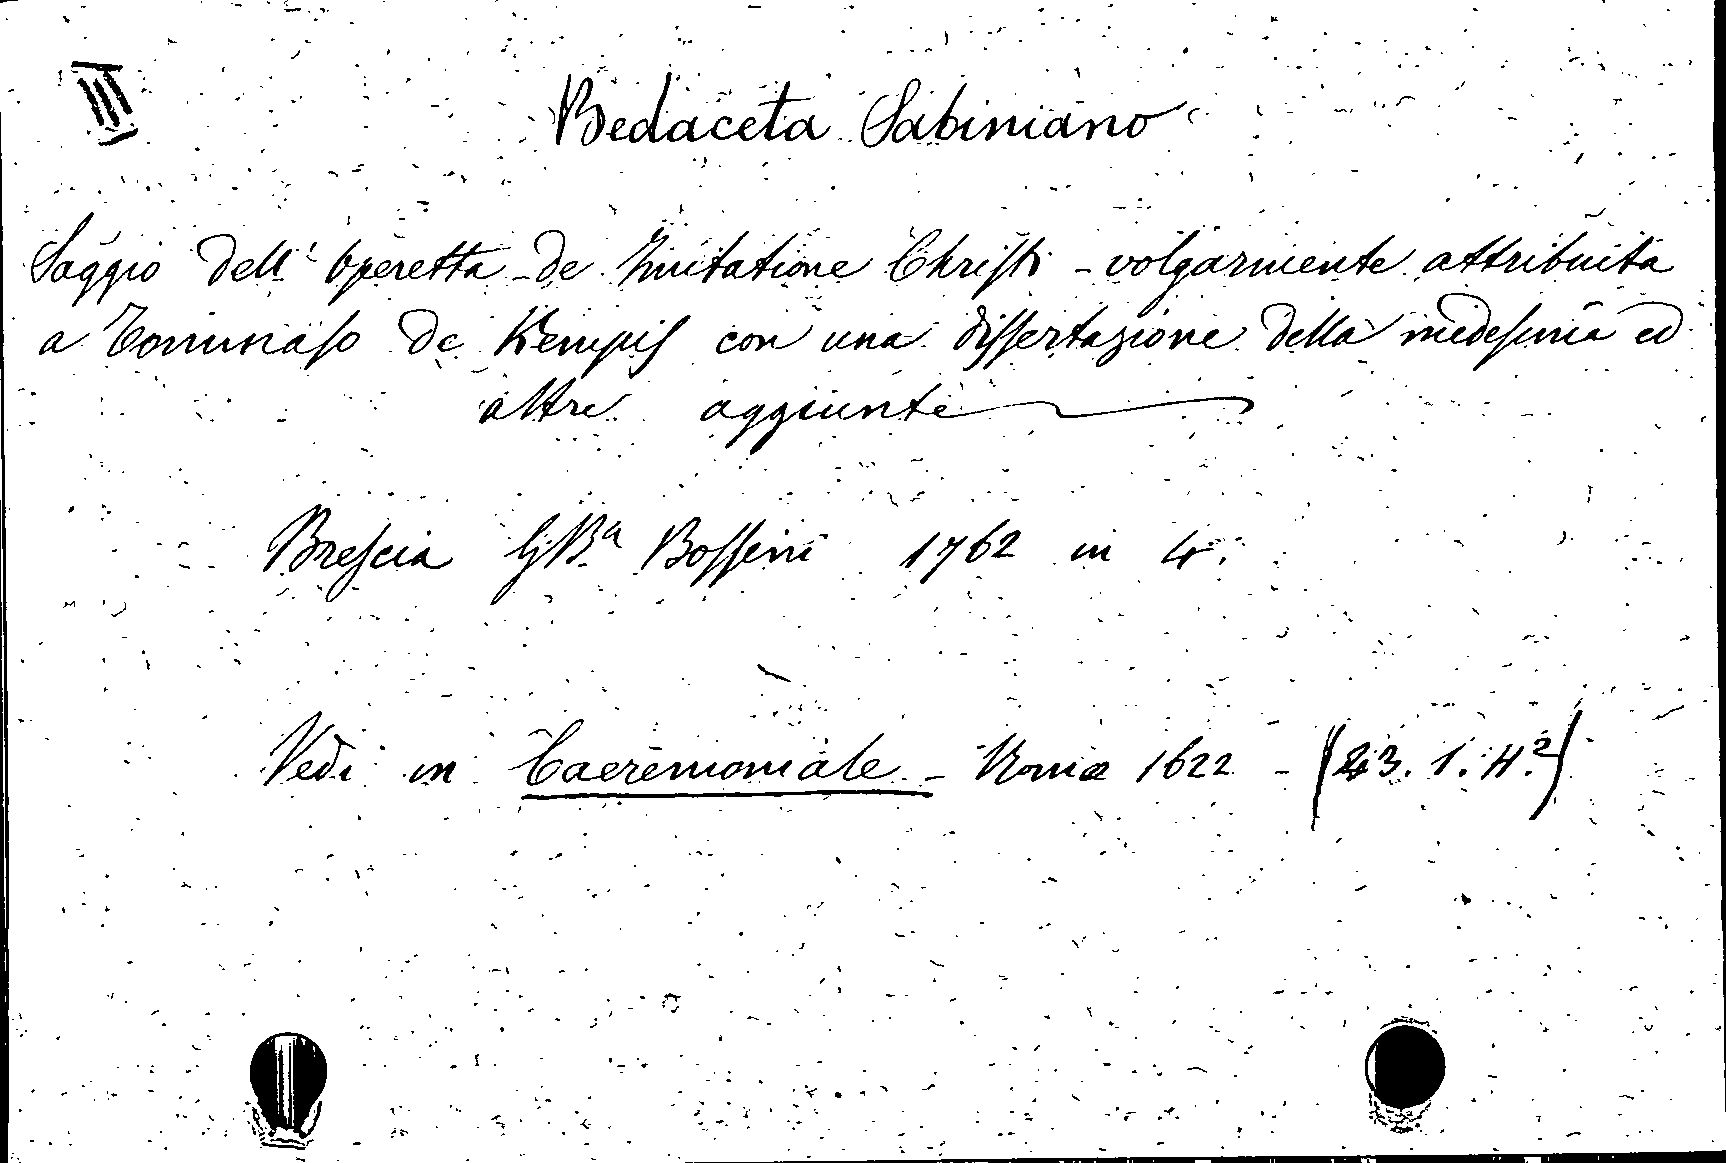 III
Bedaceta Sabiniano
Saggio dell' Operetta - de Imitatione Christi - volgarmente attribuita
a Tommaso de Kempis con una dissertazione della medesima ed
altre aggiunte
Brescia GBa Bossini 1762 in 4.
Vedi in Caeremoniale - Romae 1622 - (23. 1. H.2)